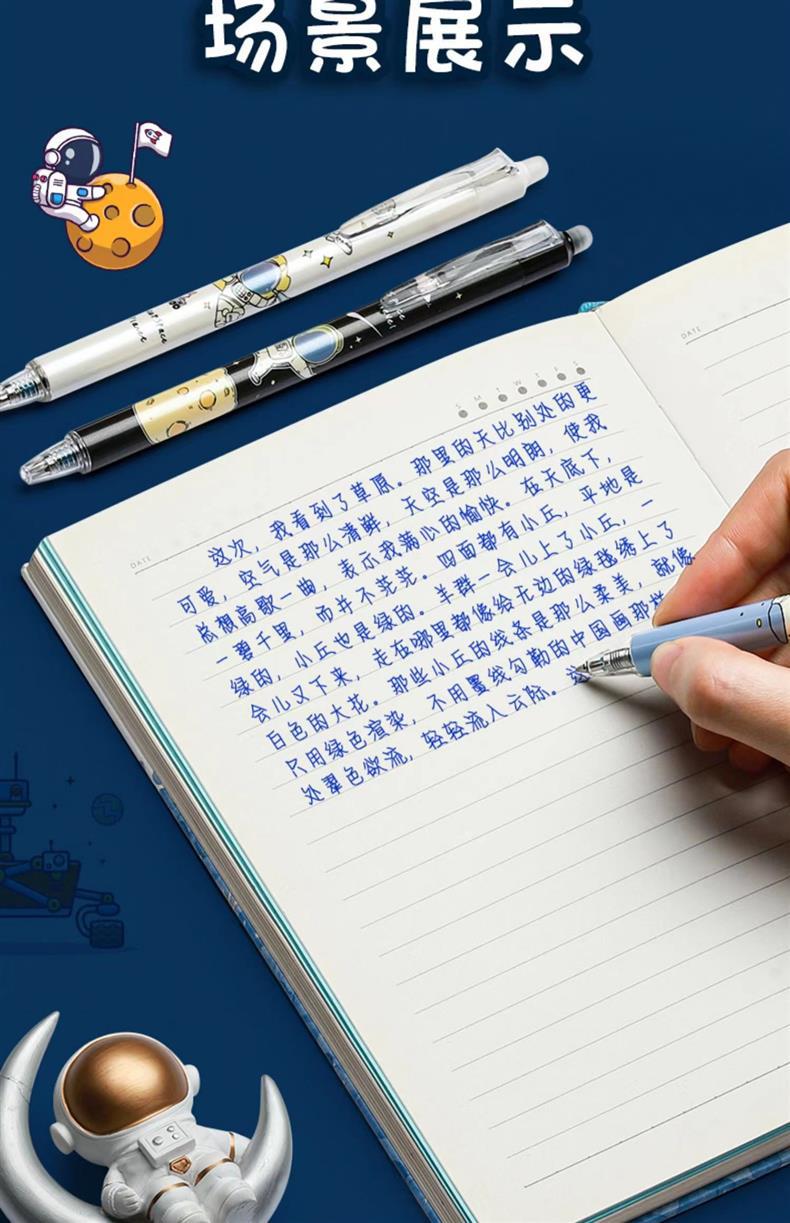 场景展示
S M T W T F S
DATE
DATE
这次，我看到了草原。那里的天比别处的更
可爱，空气是那么清鲜，天空是那么明朗，使我
总想高歌一曲，表示我满心的愉快。在天底下，
一碧千里，而并不茫茫。四面都有小丘，平地是
绿的，小丘也是绿的。羊群一会儿上了小丘，一
会儿又下来，走在哪里都像给无边的绿毯绣上了
白色的大花。那些小丘的线条是那么柔美，就像
只用绿色渲染，不用墨线勾勒的中国画那样
处翠色欲流，轻轻流入云际。